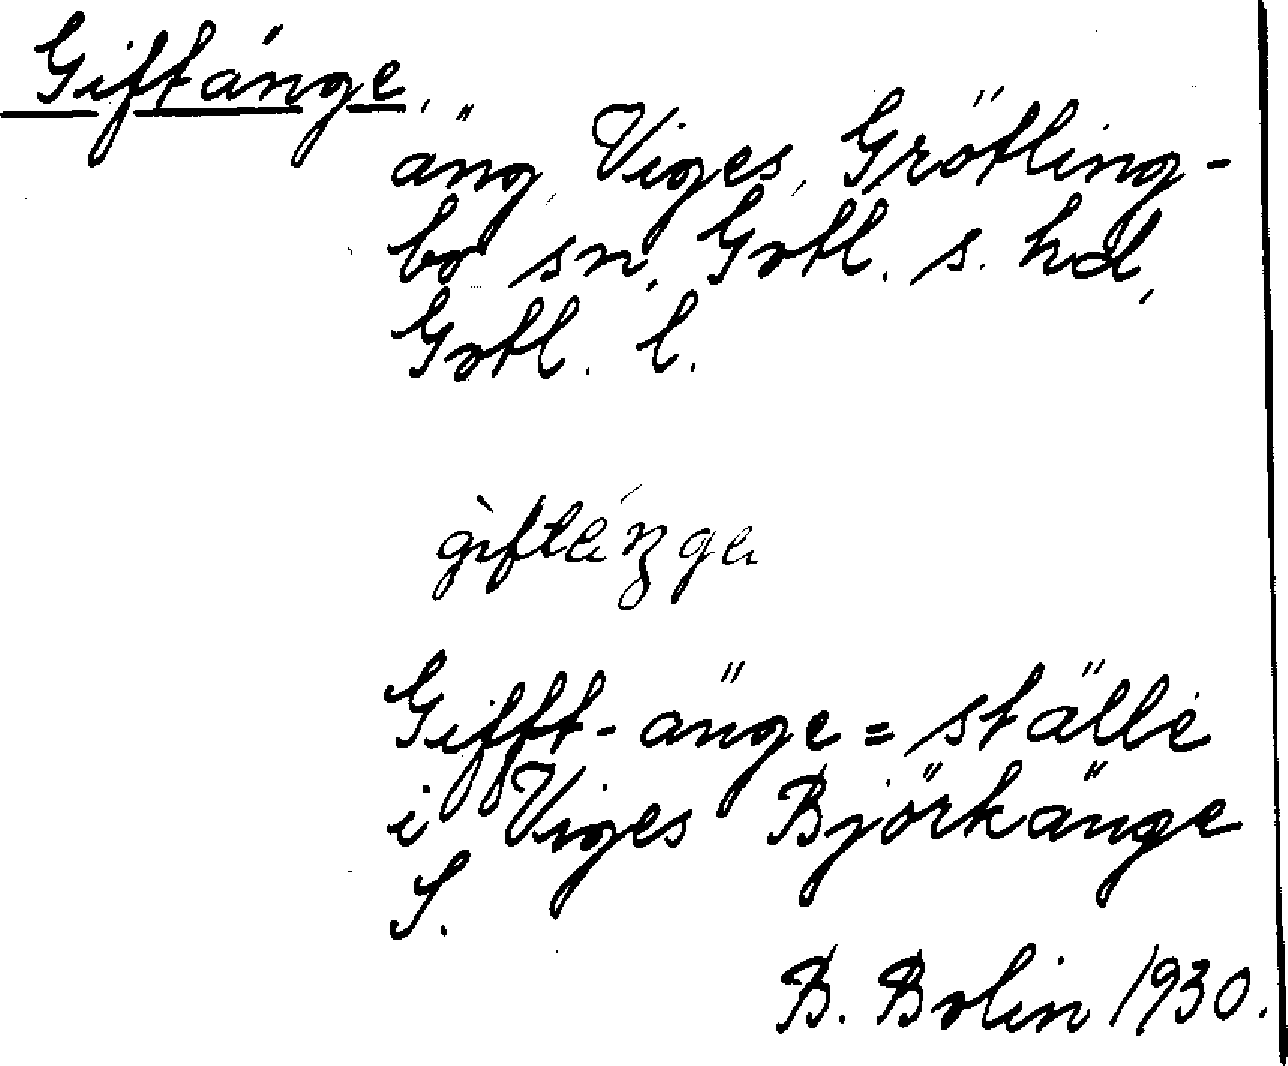 Giftänge,
äng, Viges, Grötling-
bo sn, Gotl. s. hd,
Gotl. l.
Gifft-änge = ställe
i Viges Björkänge
S.
B. Bolin 1930.